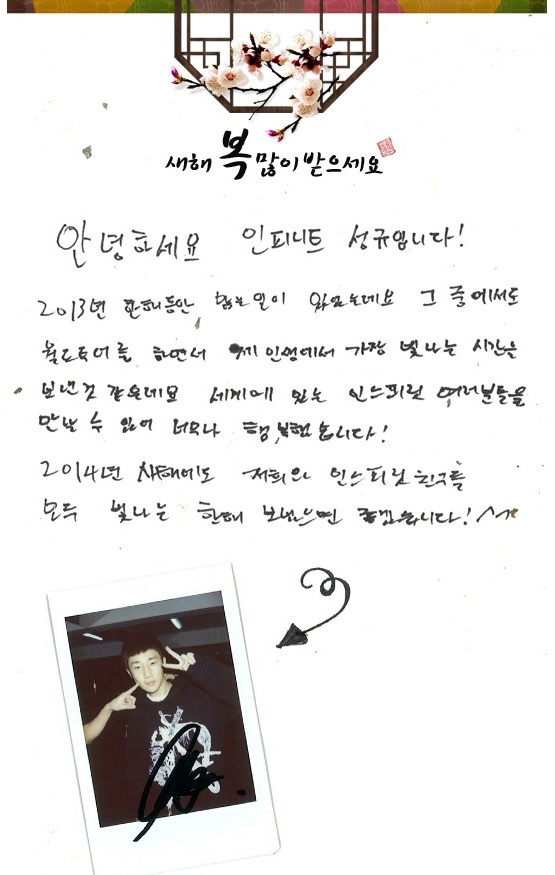 새해 복 많이 받으세요
안녕하세요 인피니트 성규입니다!
2013년 한해동안 많은일이 있었는데요 그 중에서도
월드투어를 하면서 제 인생에서 가장 빛나는 시간을
보낸것 같은데요 세계에 있는 인스피릿 여러분들을
만날 수 있어 너무나 행복했습니다!
2014년 새해에도 저희와 인스피릿 친구들
모두 빛나는 한해 보냈으면 좋겠습니다!